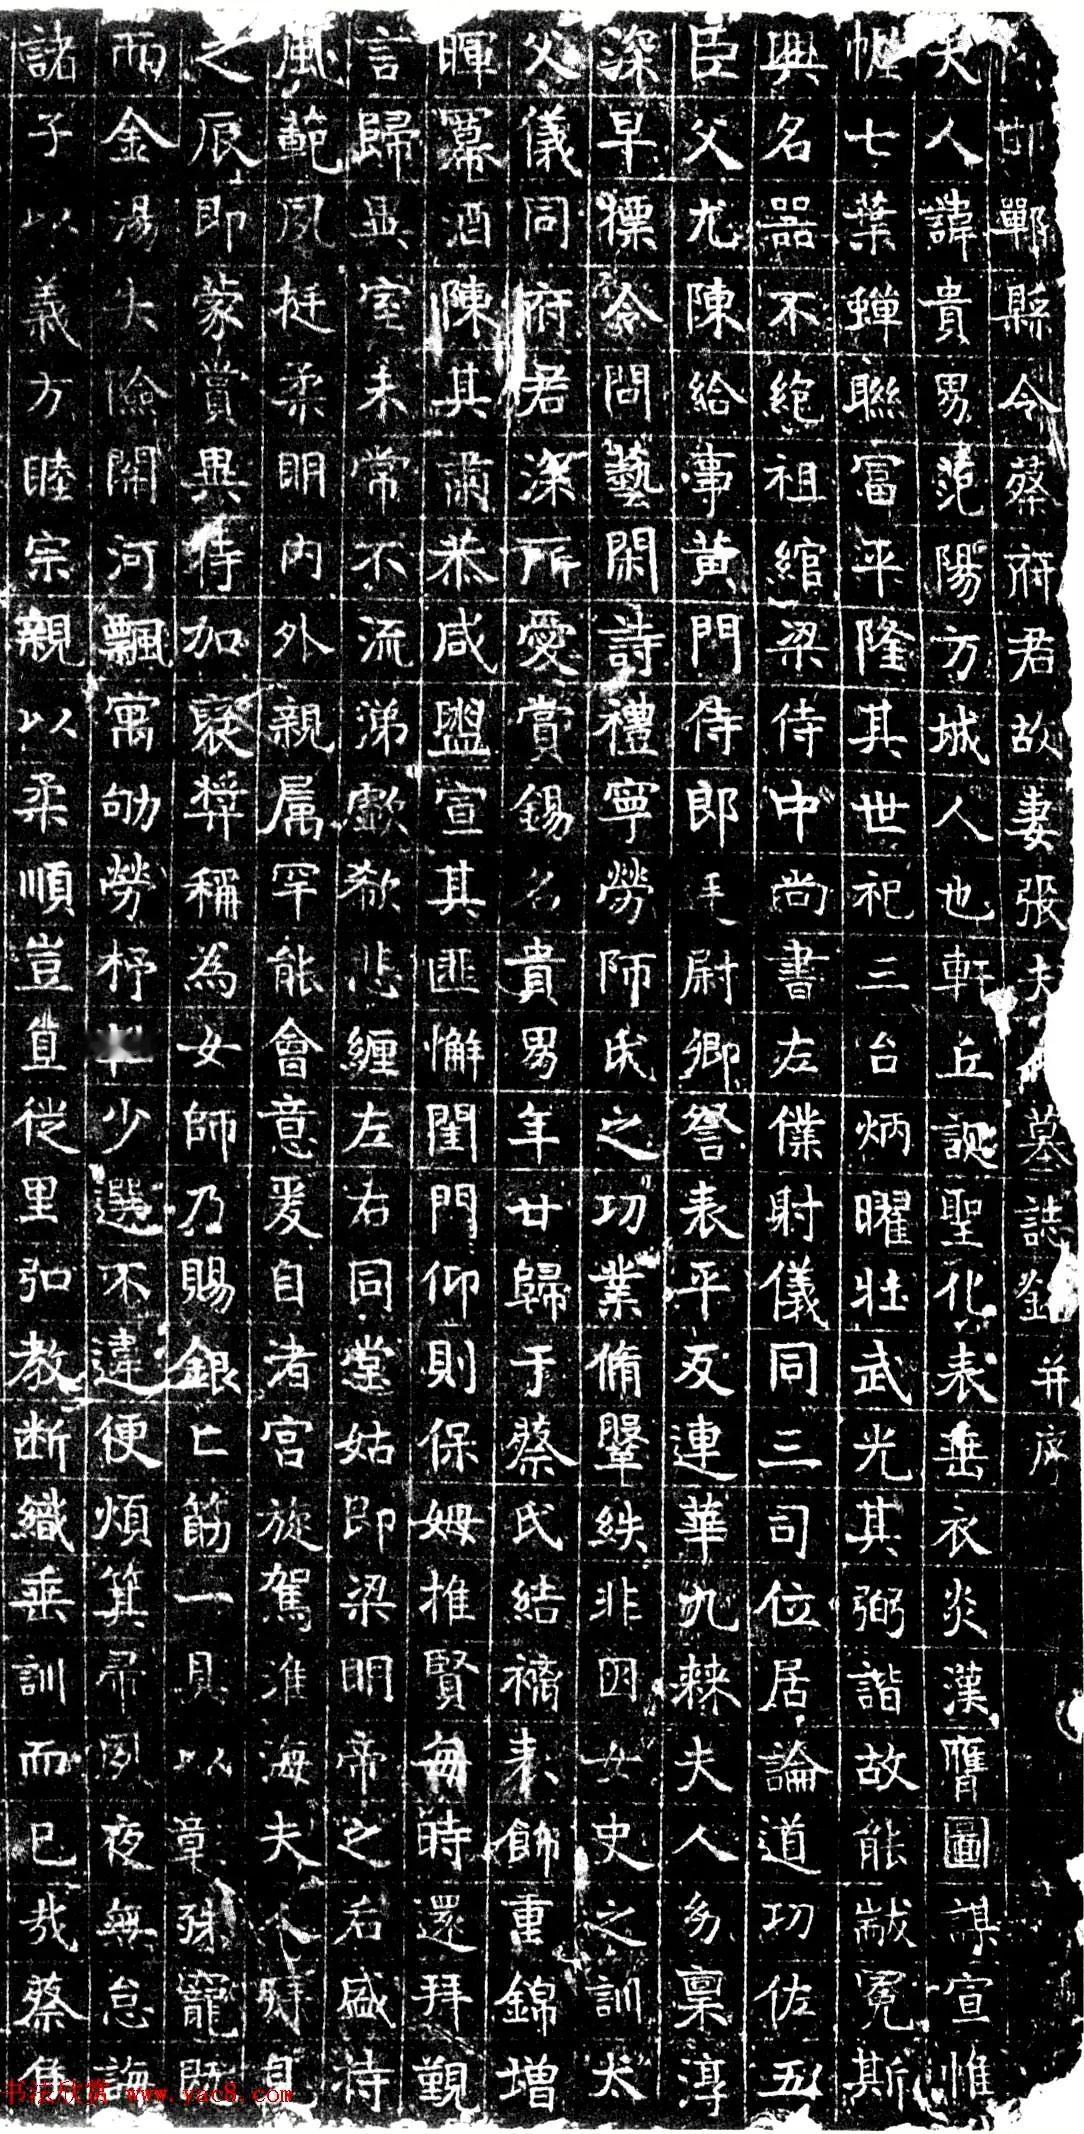 邯鄲縣令蔡府君故妻張夫人墓誌銘并序
夫人諱貴男范陽方城人也軒丘誕聖化表垂衣炎漢膺圖謀宣帷
幄七葉蟬聯富平隆其世祀三台炳曜壯武光其弼諧故能黻冕斯
興名器不絶祖綰梁侍中尚書左僕射儀同三司位居論道功佐五
臣父尤陳給事黄門侍郎廷尉卿譽表平反連華九棘夫人幼稟淳
深早標令問藝閑詩禮寧勞師氏之功業脩鞶紩非因女史之訓太
父儀同府君深所愛賞錫名貴男年廿歸于蔡氏結襦素飾重錦增
暉冪酒陳其肅恭咸盥宣其匪懈閨門仰則保姆推賢每時還拜觀
言歸異室未常不流涕歔欷悲纏左右同堂姑即梁明帝之后盛特
風範夙挺柔明内外親属罕能會意爰自渚宮旋駕淮海夫人特見
之辰即蒙賞異待加褒奬稱為女師乃賜銀匕筯一具以章殊寵既
而金湯失險關河飄寓劬勞杼少選不違便煩箕帚夙夜無怠誨
諸子以義方睦宗親以柔順豈直徙里弘教断織垂訓而已哉蔡集
书法欣赏 www.yac8.com